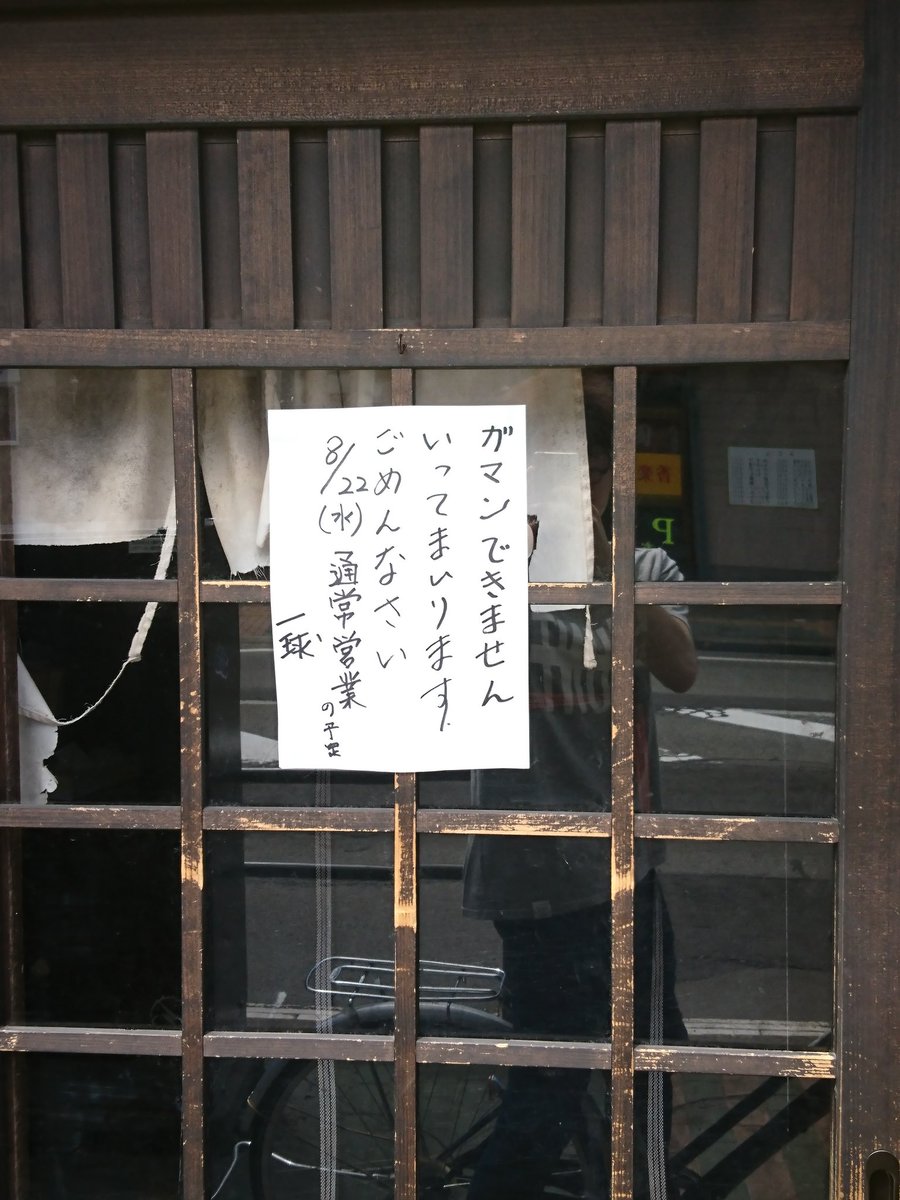 ガマンできません
いってまいります。
ごめんなさい
8/22(水)通常営業の予定
一球
P